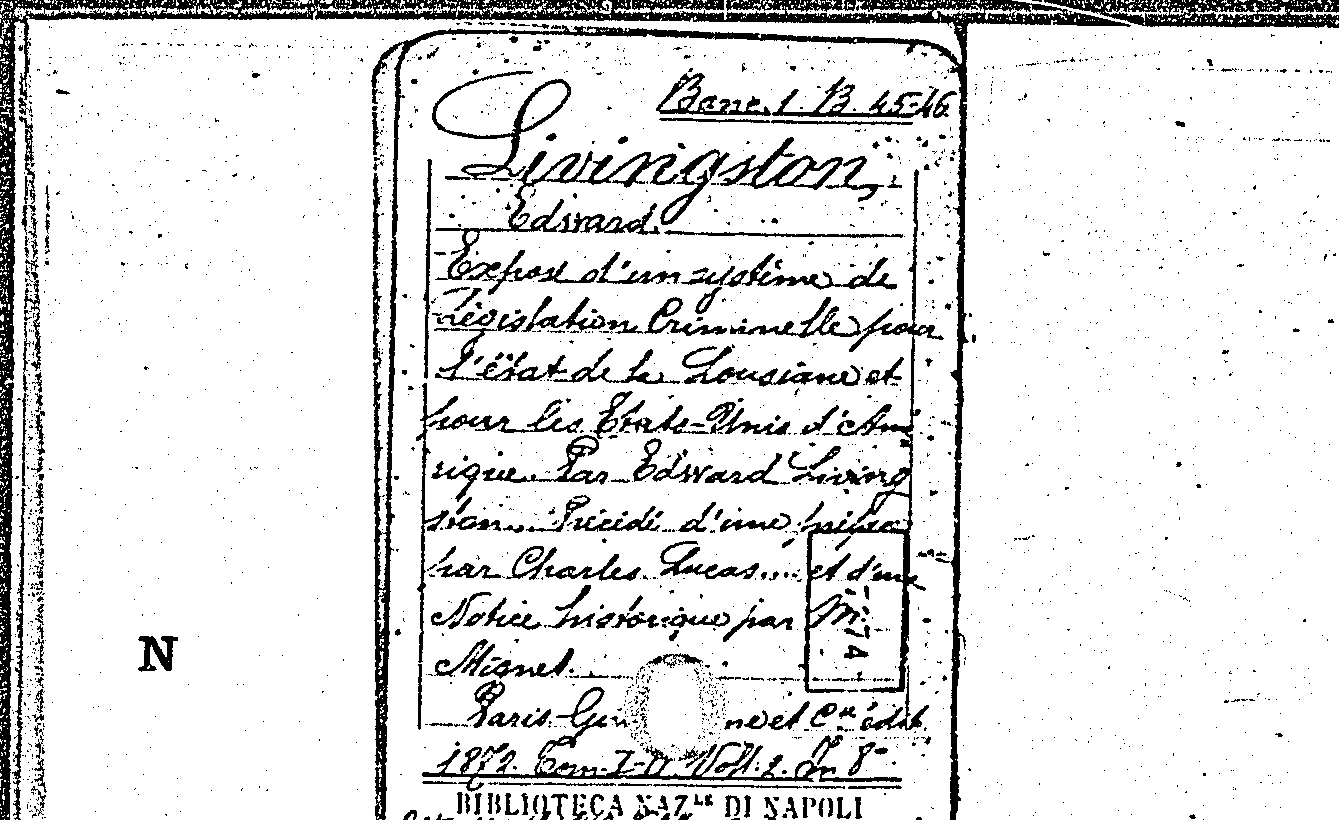 Banc. 1. B. 45-46
Livingston,
Edward.
Exposé d'un système de
Législation Criminelle pour
l'état de la Lousiane et
pour les Etats-Unis d'Amé
rique. Par Edward Living
ston... Précédé d'une préfa
par Charles Lucas.... et d'une
Notice historique par M.r
Mignet.
74
N
Paris. ne et C.ie édit.
1872. Tom. I-II. Voll. 2. In 8°
BIBLIOTECA NAZ.LE DI NAPOLI